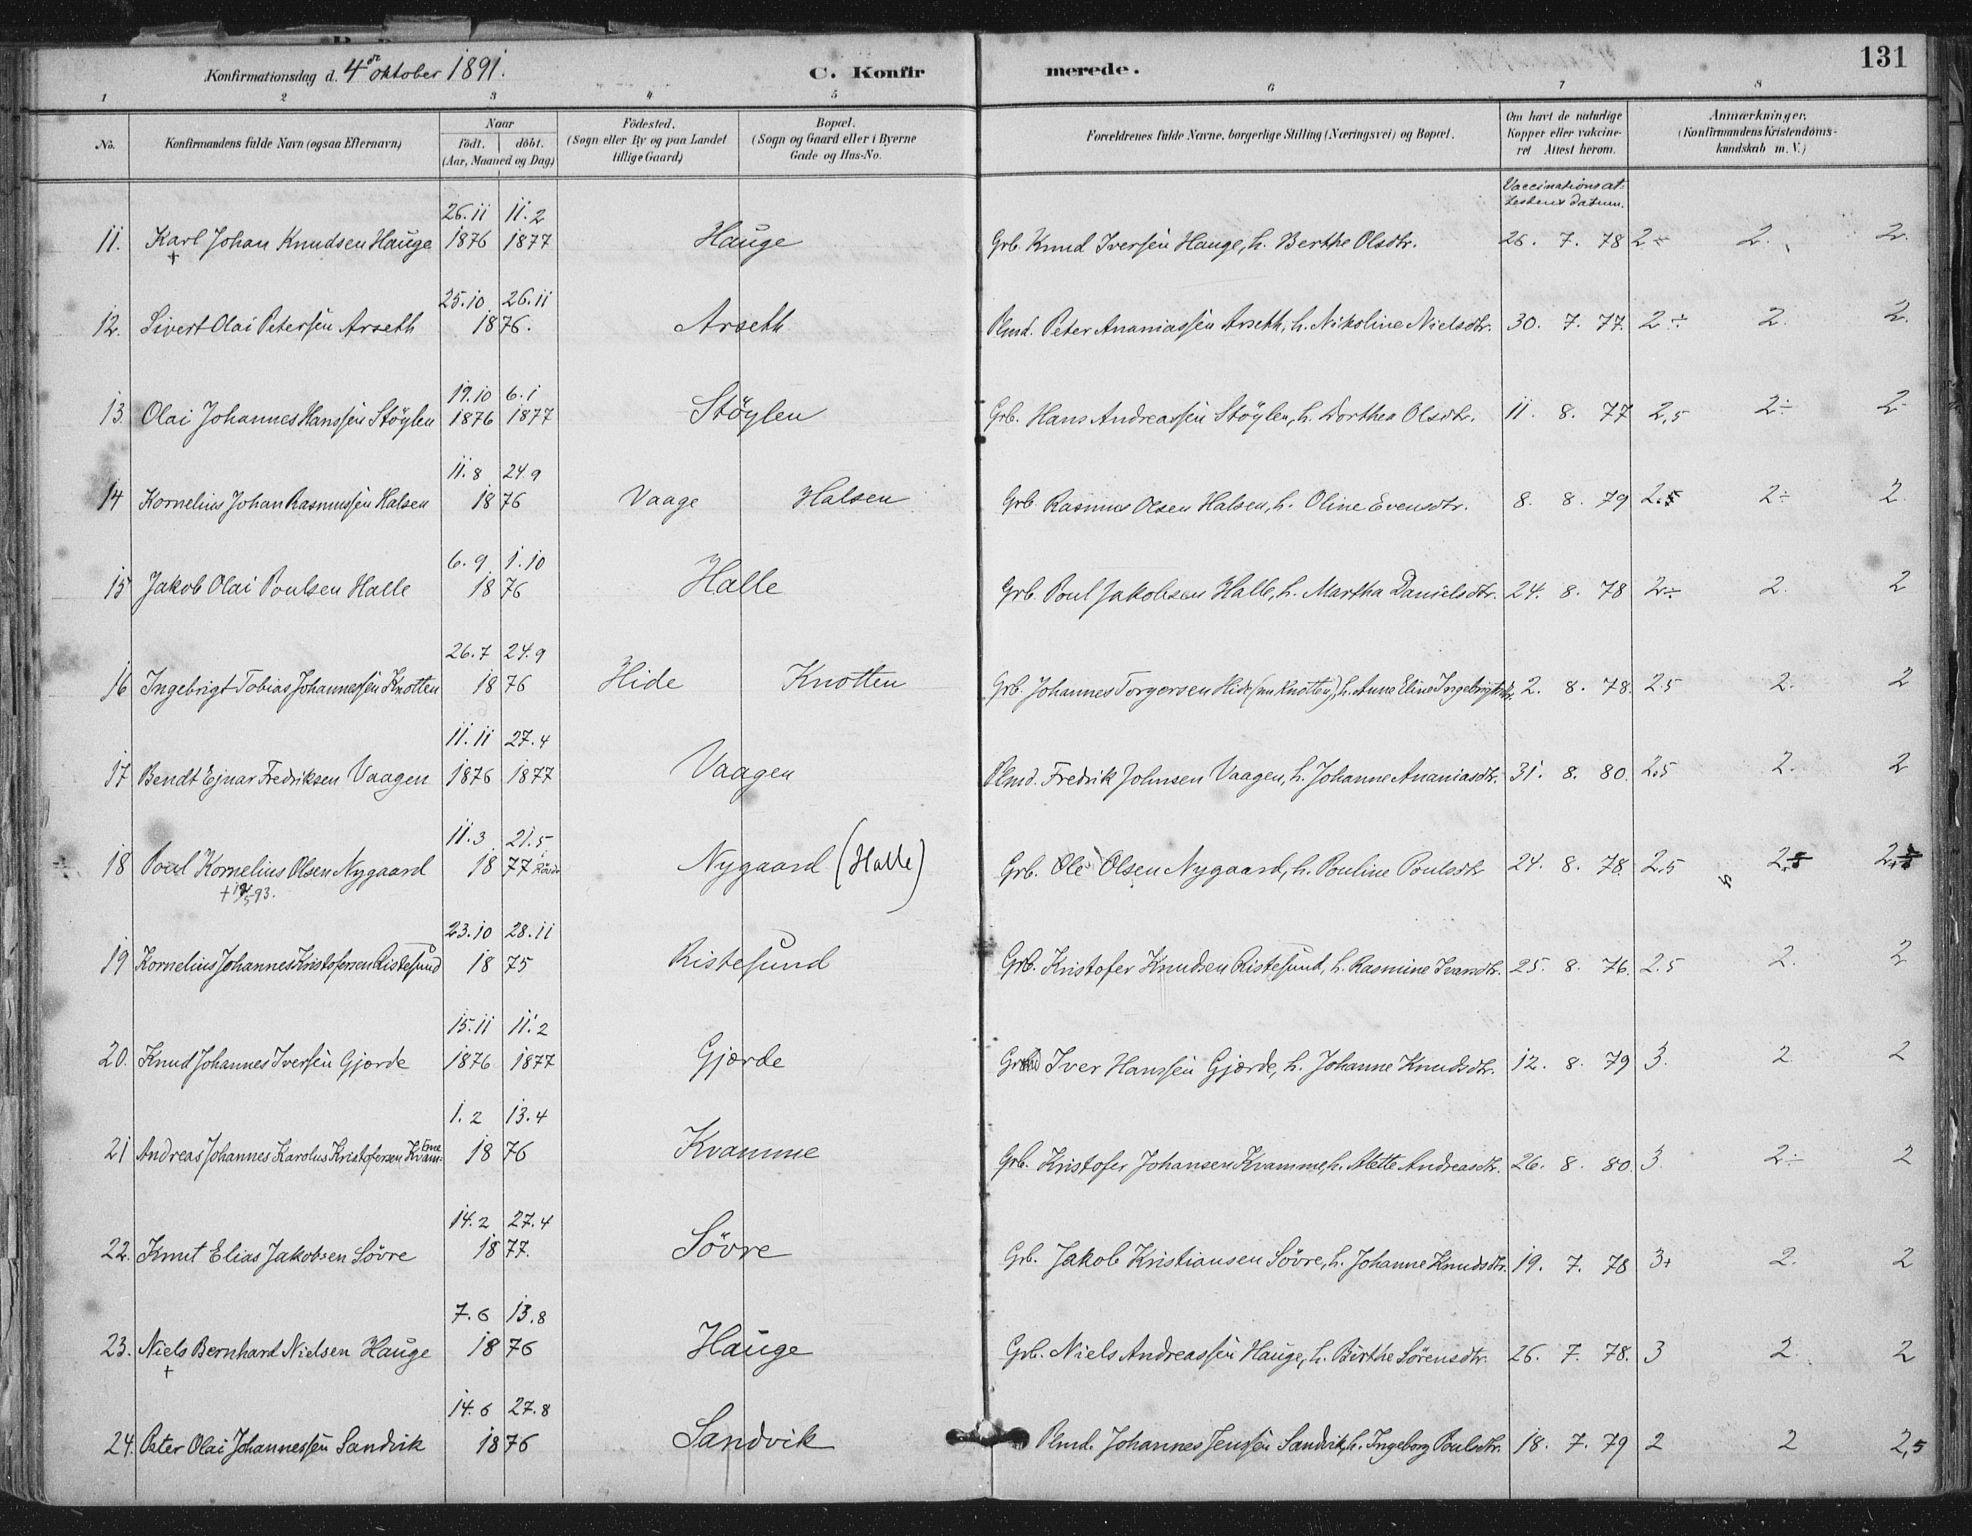 131
Konfirmationsdag d. 4de oktober 1891. C. Konfirmerede.
1 2 3 4 5 6 7 8
No. Konfirmandens fulde Navn (ogsaa Efternavn) Naar födt. döbt. (Aar, Maaned og Dag) Födested. (Sogn eller By og paa Landet tillige Gaard) Bopæl. (Sogn og Gaard eller i Byerne Gade og Hus-No. Forældrenes fulde Navne, borgerlige Stilling (Næringsvei) og Bopæl. Om havt de naturlige Kopper eller vakcineret Attest herom. Anmærkninger. (Konfirmandens Kristendomskundskab m. V.)
Vaccinationsattestens datum.
26.11 11.2
11. Karl Johan Knudsen Hauge 1876 1877 Hauge Grb. Knud Iversen Hauge, h. Berthe Olsdtr. 26. 7. 78 2÷ 2. 2.
+
25.10 26.11
12. Sivert Olai Petersen Arseth 1876. Arseth Plmd. Peter Ananiassen Arseth, h. Nikoline Nielsdtr. 30. 7. 77. 2÷ 2. 2.
19.10 6.1
13. Olai Johannes Hanssen Stöylen 1876 1877 Stöylen Grb. Hans Andreassen Stöylen, h. Dorthea Olsdtr. 11. 8. 77 2,5 2÷ 2
11.8 24.9
14 Kornelius Johan Rasmussen Halsen 1876 Vaage Halsen Grb. Rasmus Olsen Halsen, h. Oline Evensdtr. 8. 8. 79 2.5 2÷ 2
6.9 1.10
15 Jakob Olai Poulsen Halle 1876 Halle Grb. Poul Jakobsen Halle, h. Martha Danielsdtr. 24. 8. 78 2÷ 2. 2
26.7 24.9
16 Ingebrigt Tobias Johannessen Knotten 1876 Hide Knotten Grb. Johannes Torgersen Hide (nu Knotten), h. Anne Eline Ingebrigtsdtr. 2. 8. 78. 2.5 2. 2
11.11 27.4
17 Bendt Ejnar Fredriksen Vaagen 1876 1877 Vaagen Plmd. Fredrik Johnsen Vaagen, h. Johanne Ananiasdtr. 31. 8. 80. 2.5 2. 2
11.3 21.5
18 Poul Kornelius Olsen Nygaard 1877 Nygaard (Halle) Grb. Ole Olsen Nygaard, h. Pouline Poulsdtr 24. 8. 78. 2.5 2.5 2.5
23.10 28.11
19 Kornelius Johannes Kristofersen Ristesund 1875 Ristesund Grb. Kristofer Knudsen Ristesund, h. Rasmine Ivarsdtr. 25. 8. 76. 2.5 2. 2
15.11 11.2
20. Knud Johannes Iversen Gjærde 1876 1877 Gjærde Iver Hansen Gjærde, h. Johanne Knudsdtr. 12. 8. 79 3. 2 2
1.2 13.4
21 Andreas Johannes Karolus Kristofersen Kvamme 1876 Kvamme Grb. Kristofer Johansen Kvamme, h. Mette Andreasdtr. 26. 8. 80. 3. 2÷ 2
14.2 27.4
22. Knut Elias Jakobsen Sövre 1877. Sövre Grb. Jakob Kristiansen Sövre, h. Johanne Knudsdtr. 19. 7. 78 3+ 2. 2
7.6 13.8
23. Niels Bernhard Nielsen Hauge 1876 Hauge Grb. Niels Andreassen Hauge, h. Birthe Sörensdtr. 26. 7. 78. 3 2. 2
+
14.6 27.8
24. Peter Olai Johannessen Sandvik 1876 Sandvik Plmd. Johannes Jenssen Sandvik, h. Ingeborg Poulsdtr. 18. 7. 79 2 2 2,5